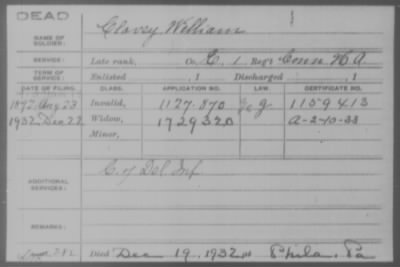 DEAD
NAME OF SOLDIER: Clovey William
SERVICE: Late rank, Co. C, 1 Reg't Conn H A
TERM OF SERVICE: Enlisted , 1 Discharged , 1
DATE OF FILING. CLASS. APPLICATION NO. LAW. CERTIFICATE NO.
1892, Aug 23 Invalid, 1127.870 G 1159413
1932, Dec 22 Widow, 1729320 A-2-10-33
Minor,
ADDITIONAL SERVICES: C. 7 Del Inf
REMARKS:
Died Dec 19, 1932, at Phila. Pa